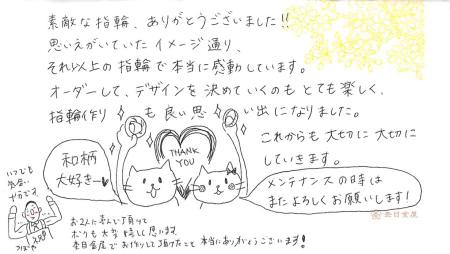 素敵な指輪、ありがとうございました!!
思いえがいていたイメージ通り、
それ以上の指輪で本当に感動しています。
オーダーして、デザインを決めていくのもとても楽しく、
指輪作りも良い思い出になりました。
これからも大切に大切に
していきます。
メンテナンスの時は
またよろしくお願いします!
THANK
YOU
和柄
大好きー♥
いつでも
気合い
十分です
お2人に喜んで頂けて
ボクも大変嬉しく思います
杢目金屋でお作りして頂けたこと本当にありがとうございます!
杢目金屋